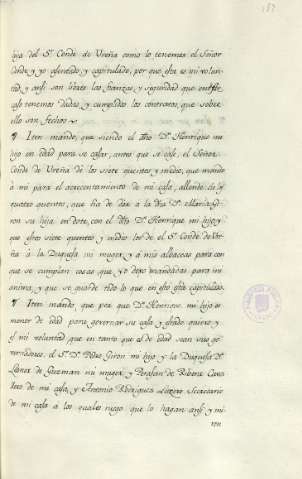 hija del S.r Conde de Ureña como lo tenemos el Señor
Conde, y yo asentado, y capitulado, por que esta es mi volun-
tad, y assi san dadas las fianzas, y seguridad que en este
caso tenemos dadas, y cumplidos los contratos, que sobre
ello san fechos
Iten mando, que siendo el dho D.n Henrrique mi
hijo en edad para se casar, antes que se case, el Señor
Conde de Ureña de los siete quentos y medio, que mandó
à mi para el acrecentamiento de mi casa, allende de los
quatro quentos, que ha de dar à la dha D.a Maria Gi-
ron su hija en dote, con el dho D.n Henrrique mi hijo, y
que estos siete quentos, y medio los dé el S.r Conde de Ure-
ña à la Duquesa mi muger, y à mis albaceas para con
que se cumplan cosas que yo dexo mandadas para mi
anima, y que se guarde todo lo que en esto está capitulado.
Iten mando, que por que D.n Henrrique mi hijo es
menor de edad para governar su casa, y estado quiero, y
es mi voluntad que en tanto que el de edad sean sus go-
vernadores el S.r D.n Pedro Giron mi hijo y la Duquesa D.a
Leonor de Guzman mi muger, y Perafan de Ribera Cava-
llero de mi casa, y Antonio Rodriguez Secretario
de mi casa à los quales ruego que lo hagan assi, y mi